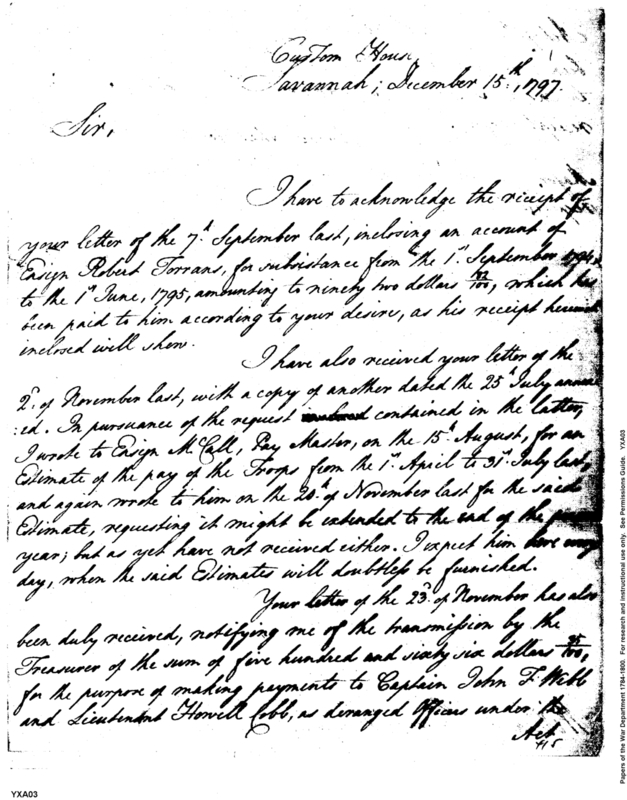 Custom House,
Savannah; December 15th, 1797.
Sir,
I have to acknowledge the receipt of
your letter of the 7th September last, inclosing an account of
Ensign Robert Torrans, for subsistance from the 1st September 1794,
to the 1st June, 1795, amounting to ninety two dollars /100, which has
been paid to him according to your desire, as his receipt herewith
inclosed will show.
I have also received your letter of the
2d. of November last, with a copy of another dated the 25th July annex
:ed. In pursuance of the request contained in the latter,
I wrote to Ensign McCall, Pay Master, on the 15th August, for an
Estimate of the pay of the Troops from the 1st April to 31st July last,
and again wrote to him on the 20th of November last for the said
Estimate, requesting it might be extended to the end of the
year; but as yet have not received either. I expect him here every
day, when the said Estimates will doubtless be furnished.
Your letter of the 23d of November has also
been duly received, notifying me of the transmission by the
Treasurer of the sum of five hundred and sixty six dollars /100,
for the purpose of making payments to Captain John F. Webb
and Lieutenant Howell Cobb, as deranged Officers under the
Act
YXA03
Papers of the War Department 1784-1800. For research and instructional use only. See Permissions Guide. YXA03